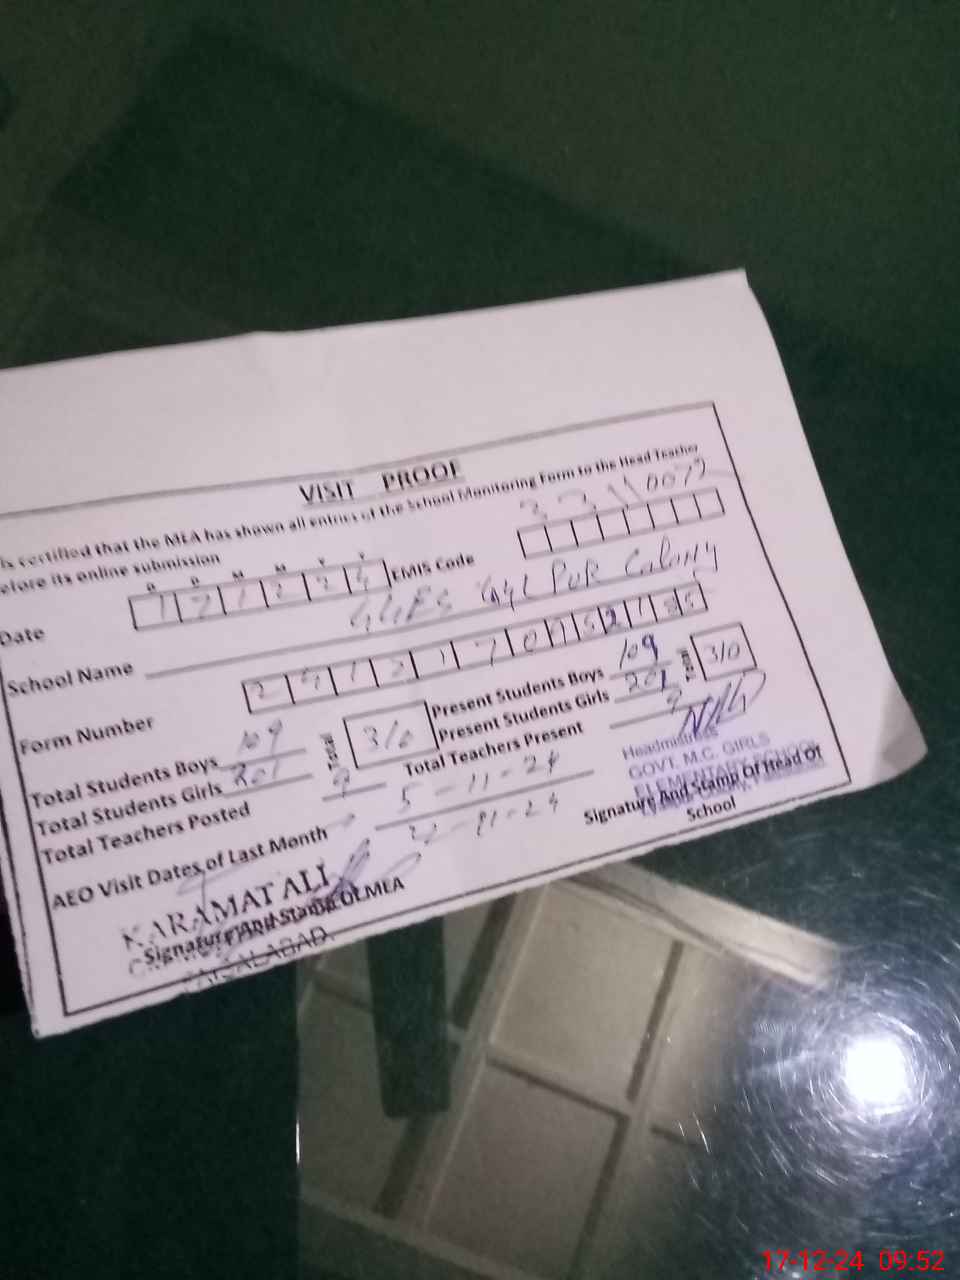 VISIT PROOF
is certified that the MEA has shown all entries of the School Monitoring Form to the Head Teacher
efore its online submission
D D M M Y Y
Date 1 7 1 2 2 4 EMIS Code 3 3 1 1 0 0 7 2
School Name GGES Lyl PUR Colony
Form Number 2 4 1 2 1 7 0 9 5 2 1 5 5
Total Students Boys 109 Total 310 Present Students Boys 109 Total 310
Total Students Girls 201 Present Students Girls 201
Total Teachers Posted 9 Total Teachers Present 9
AEO Visit Dates of Last Month 5-11-24
22-11-24
Headmistress
GOVT. M.C. GIRLS
ELEMENTARY SCHOOL
Signature And Stamp Of Head Of
School
KARAMAT ALI
Signature And Stamp Of MEA
FAISALABAD.
17-12-24 09:52